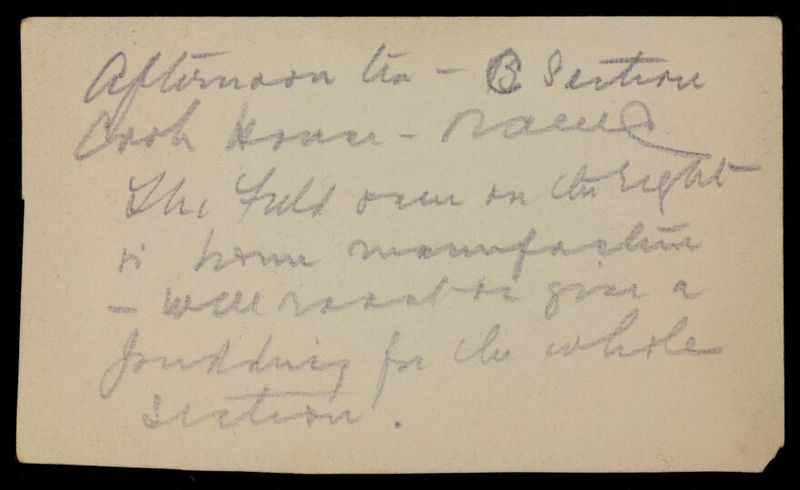 Afternoon tea - B Section
Cook House -
The Field oven on the right
is home manufacture
- will roast or give a
pudding for the whole
section.